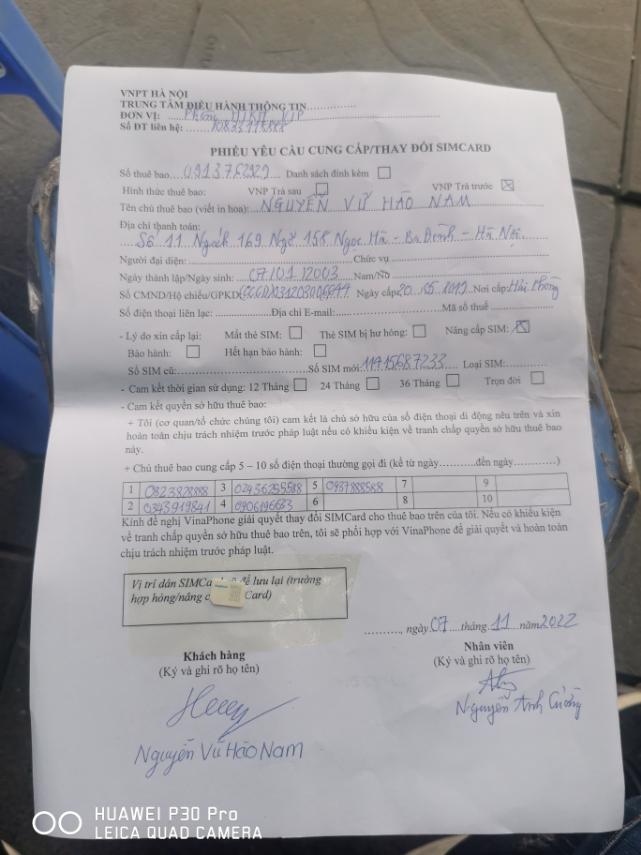 VNPT HÀ NỘI
TRUNG TÂM ĐIỀU HÀNH THÔNG TIN..............
ĐƠN VỊ: Phòng VIP
Số ĐT liên hệ:
PHIẾU YÊU CẦU CUNG CẤP/THAY ĐỔI SIMCARD
Số thuê bao 0913762929 Danh sách đính kèm
Hình thức thuê bao: VNP Trả sau VNP Trả trước
Tên chủ thuê bao (viết in hoa): NGUYỄN VŨ HÀO NAM
Địa chỉ thanh toán:
Số 11 Ngách 169 Ngõ 158 Ngọc Hà - Ba Đình - Hà Nội.
Người đại diện: Chức vụ
Ngày thành lập/Ngày sinh: 07/01/2003 Nam/Nữ
Số CMND/Hộ chiếu/GPKD Ngày cấp 20.05.2019 Nơi cấp: Hải Phòng
Số điện thoại liên lạc: Địa chỉ E-mail: Mã số thuế
- Lý do xin cấp lại: Mất thẻ SIM: Thẻ SIM bị hư hỏng: Nâng cấp SIM:
Bảo hành: Hết hạn bảo hành:
Số SIM cũ: Số SIM mới: 11915687233 Loại SIM:
- Cam kết thời gian sử dụng: 12 Tháng 24 Tháng 36 Tháng Trọn đời
- Cam kết quyền sở hữu thuê bao:
+ Tôi (cơ quan/tổ chức chúng tôi) cam kết là chủ sở hữu của số điện thoại di động nêu trên và xin
hoàn toàn chịu trách nhiệm trước pháp luật nếu có khiếu kiện về tranh chấp quyền sở hữu thuê bao
này.
+ Chủ thuê bao cung cấp 5 – 10 số điện thoại thường gọi đi (kể từ ngày...........đến ngày............)
1 0823828888 3 02436255588 5 0937888588 7 9
2 0343919841 4 0906196683 6 8 10
Kính đề nghị VinaPhone giải quyết thay đổi SIMCard cho thuê bao trên của tôi. Nếu có khiếu kiện
về tranh chấp quyền sở hữu thuê bao trên, tôi sẽ phối hợp với VinaPhone để giải quyết và hoàn toàn
chịu trách nhiệm trước pháp luật.
Vị trí dán SIMCa để lưu lại (trường
hợp hỏng/nâng c Card)
.........., ngày 07 tháng 11 năm 2022
Khách hàng Nhân viên
(Ký và ghi rõ họ tên) (Ký và ghi rõ họ tên)
Nguyễn Vũ Hào Nam Nguyễn Anh Cường
HUAWEI P30 Pro
LEICA QUAD CAMERA